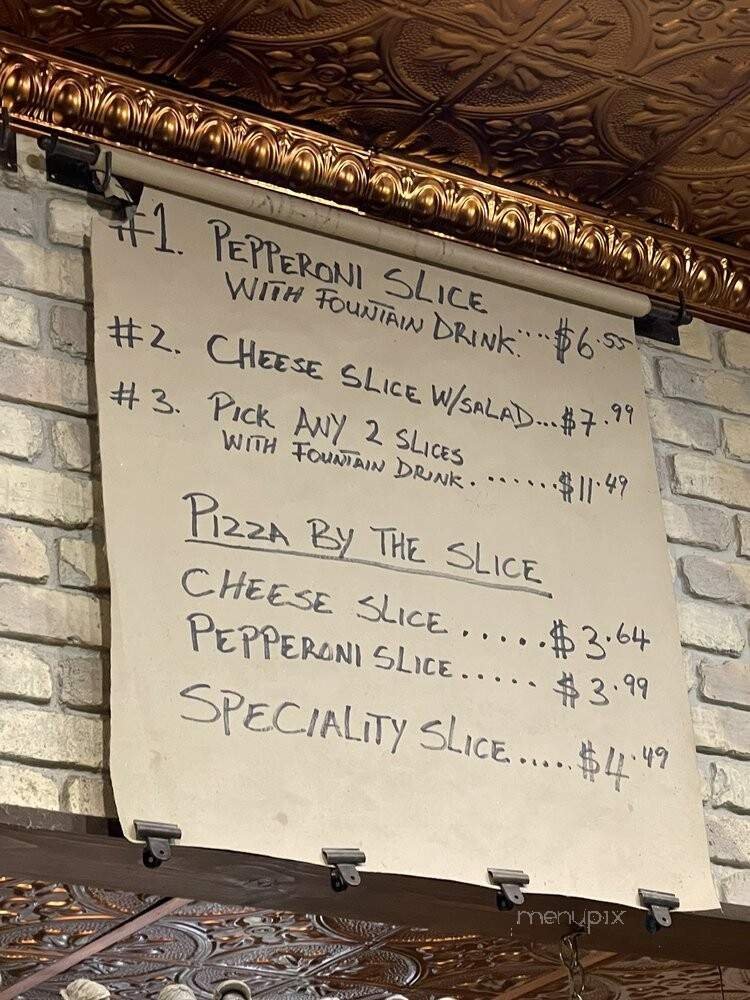 #1. PEPPERONI SLICE
WITH FOUNTAIN DRINK.....$6.55
#2. CHEESE SLICE W/SALAD...$7.99
#3. PICK ANY 2 SLICES
WITH FOUNTAIN DRINK.......$11.49
PIZZA BY THE SLICE
CHEESE SLICE.....$3.64
PEPPERONI SLICE.....$3.99
SPECIALITY SLICE.....$4.49
menupix